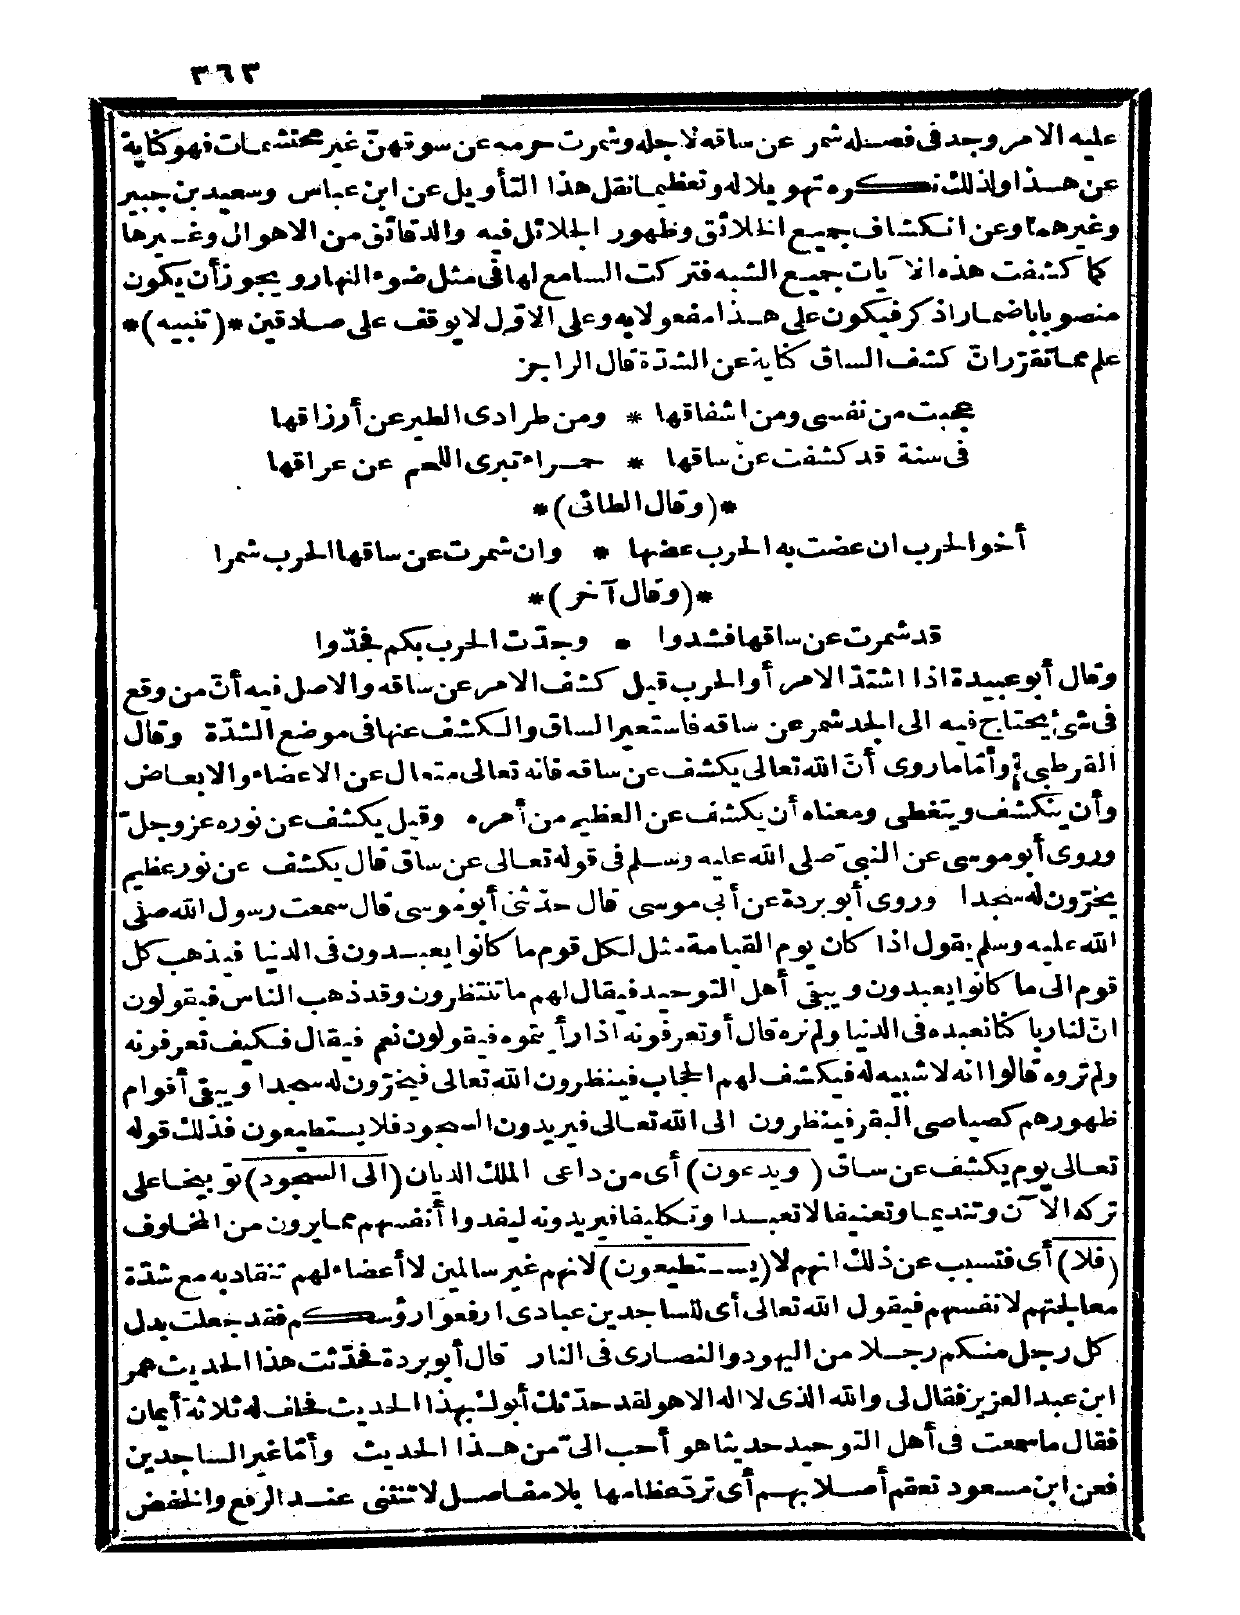 ٣٦٣
عليه الامر وجد في فصله شمر عن ساقه لاجله وشمرت حرمه عن سوقهنّ غير محتشمات فهو كناية
عن هذا ولذلك نكره تهويلا له وتعظيما نقل هذا التأويل عن ابن عباس وسعيد بن جبير
وغيرهما وعن انكشاف جميع الخلائق وظهور الجلائل فيه والدقائق من الاهوال وغيرها
كما كشفت هذه الآيات جميع الشبه فتركت السامع لها في مثل ضوء النهار ويجوز أن يكون
منصوبا باضمار اذكر فيكون على هذا مفعولا به وعلى الاوّل لا يوقف على صادقين *(تنبيه)*
علم مما تقرّر انّ كشف الساق كناية عن الشدّة قال الراجز
عجبت من نفسي ومن اشفاقها * ومن طرادى الطير عن أرزاقها
في سنة قد كشفت عن ساقها * حمراء تبرى اللحم عن عراقها
*(وقال الطائى)*
أخو الحرب ان عضت به الحرب عضها * وان شمرت عن ساقها الحرب شمرا
*(وقال آخر)*
قد شمرت عن ساقها فشدوا * وجدّت الحرب بكم فجدّوا
وقال أبو عبيدة اذا اشتدّ الامر أو الحرب قيل كشف الامر عن ساقه والاصل فيه أنّ من وقع
في شئ يحتاج فيه الى الجد شمر عن ساقه فاستعير الساق والكشف عنها في موضع الشدّة وقال
القرطبي وأمّا ما روى أنّ الله تعالى يكشف عن ساقه فانه تعالى متعال عن الاعضاء والابعاض
وأن ينكشف ويتغطى ومعناه أن يكشف عن العظيم من أمره وقيل يكشف عن نوره عز وجلّ
وروى أبو موسى عن النبيّ صلى الله عليه وسلم في قوله تعالى عن ساق قال يكشف عن نور عظيم
يخرّون له سجدا وروى أبو بردة عن أبي موسى قال حدّثني أبو موسى قال سمعت رسول الله صلى
الله عليه وسلم يقول اذا كان يوم القيامة مثل لكل قوم ما كانوا يعبدون في الدنيا فيذهب كل
قوم الى ما كانوا يعبدون ويبقى أهل التوحيد فيقال لهم ما تنتظرون وقد ذهب الناس فيقولون
انّ لنا ربا كنا نعبده في الدنيا ولم نره قال أو تعرفونه اذا رأيتموه فيقولون نعم فيقال فكيف تعرفونه
ولم تروه قالوا انه لا شبيه له فيكشف لهم الحجاب فينظرون الله تعالى فيخرّون له سجدا ويبقى أقوام
ظهورهم كصياصي البقر فينظرون الى الله تعالى فيريدون السجود فلا يستطيعون فذلك قوله
تعالى يوم يكشف عن ساق (ويدعون) أى من داعى الملك الديان (الى السجود) توبيخا على
تركه الآن وتنديما وتعنيفا لا تعبدا وتكليفا فيريدونه ليفدوا أنفسهم مما يرون من المخاوف
(فلا) أى فتسبب عن ذلك انهم لا (يستطيعون) لانهم غير سالمين لا أعضاء لهم تنقاد به مع شدّة
معالجتهم لانفسهم فيقول الله تعالى أى للساجدين عبادى ارفعوا رؤسكم فقد جعلت بدل
كل رجل منكم رجلا من اليهود والنصارى في النار قال أبو بردة فحدّثت هذا الحديث عمر
ابن عبد العزيز فقال لى والله الذى لا اله الا هو لقد حدّثك أبوك بهذا الحديث فحلف له ثلاثة أيمان
فقال ما سمعت في أهل التوحيد حديثا هو أحب الىّ من هذا الحديث وأمّا غير الساجدين
فعن ابن مسعود تعقم أصلابهم أى تردّ عظامها بلا مفاصل لا تنثنى عند الرفع والخفض